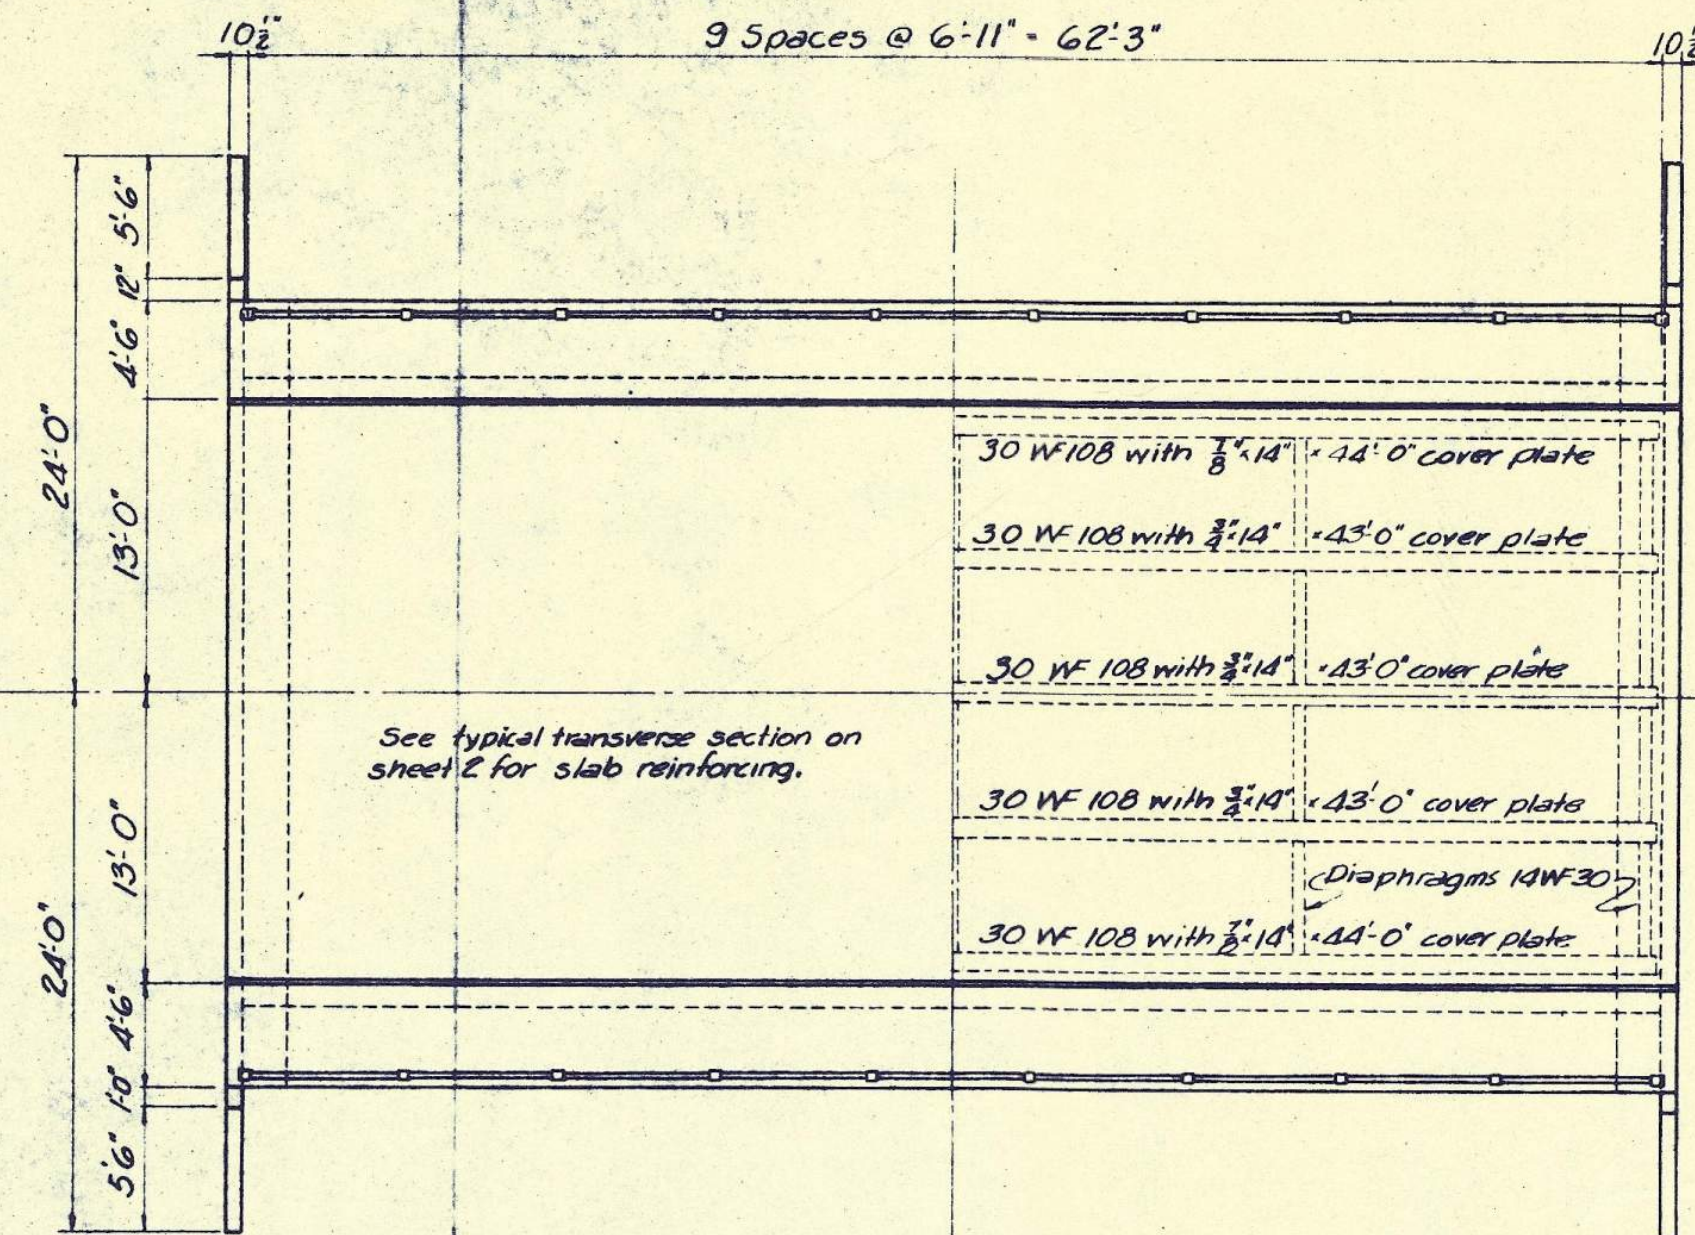 10½"
9 Spaces @ 6'-11" = 62'-3"
10½
24'-0"
5'-6"
12"
4'-6"
13'-0"
30 WF 108 with ⅞"×14" × 44'-0" cover plate
30 WF 108 with ¾"×14" × 43'-0" cover plate
30 WF 108 with ¾"×14" × 43'-0" cover plate
See typical transverse section on
sheet 2 for slab reinforcing.
30 WF 108 with ¾"×14" × 43'-0" cover plate
Diaphragms 14WF30
30 WF 108 with ⅞"×14" × 44'-0" cover plate
24'-0"
13'-0"
4'-6"
1'-0"
5'-6"